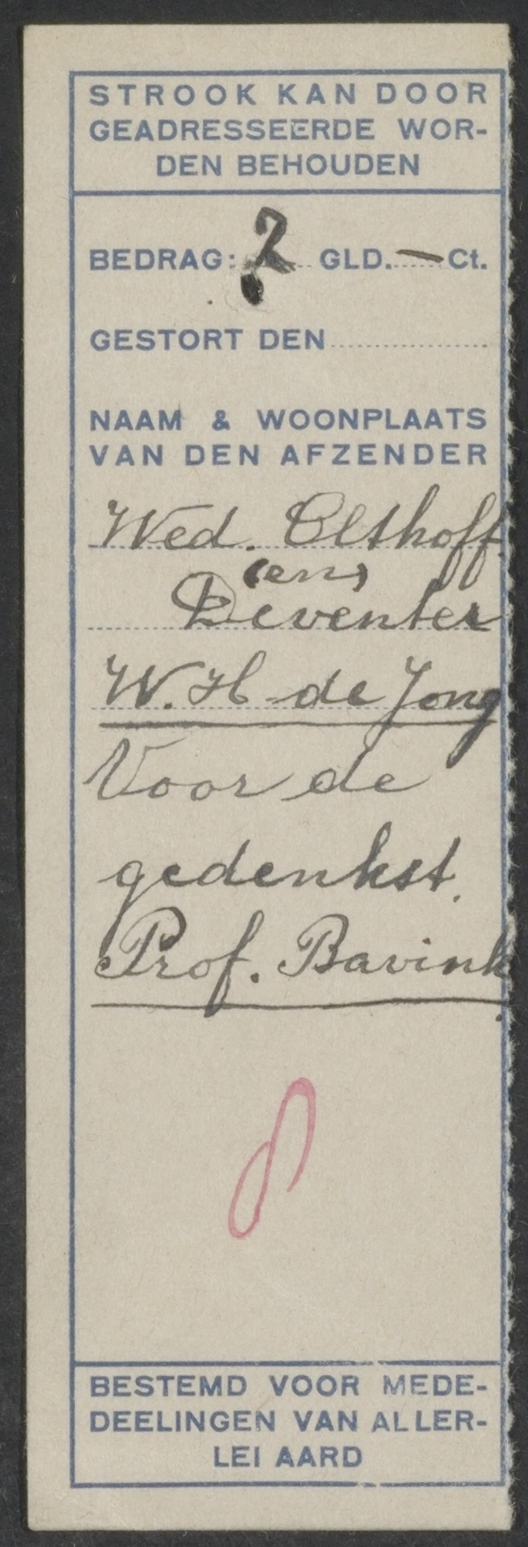 STROOK KAN DOOR
GEADRESSEERDE WOR-
DEN BEHOUDEN
BEDRAG: 2 GLD. — Ct.
GESTORT DEN
NAAM & WOONPLAATS
VAN DEN AFZENDER
Wed. Olthoff
(en)
Deventer
W. H de Jong
Voor de
gedenkst.
Prof. Bavink
BESTEMD VOOR MEDE-
DEELINGEN VAN ALLER-
LEI AARD